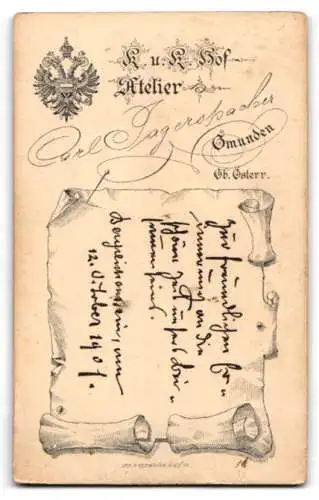 K. u. K. Hof
Atelier
Carl Jagerspacher
Gmunden
Ob. Österr.
Zur freundlichen Er=
innerung an die
schöne Zeit unsers Bei=
12. Oktober 1901.